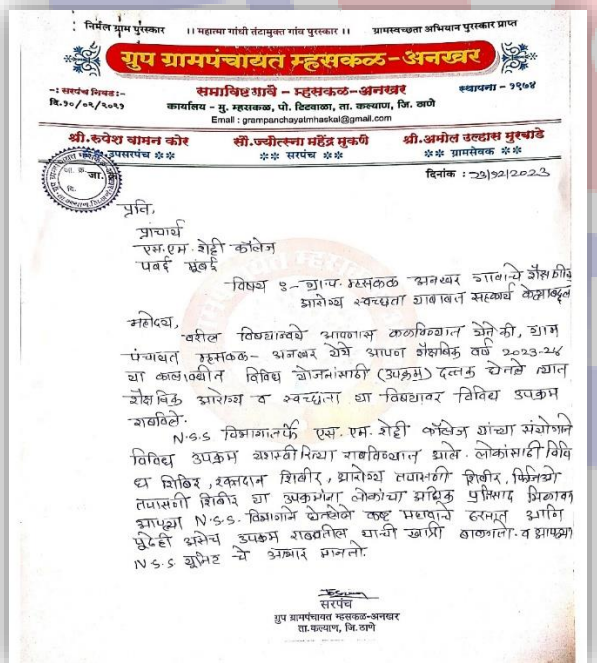 निर्मल ग्राम पुरस्कार ।। महात्मा गांधी तंटामुक्त गांव पुरस्कार ।। ग्रामस्वच्छता अभियान पुरस्कार प्राप्त
ग्रुप ग्रामपंचायत म्हसकळ-अनखर
-: सरपंच निवड:- समाविष्ट गावे - म्हसकळ-अनखर स्थापना - १९७४
दि.१०/०२/२०२१ कार्यालय - मु. म्हसकळ, पो. टिटवाळा, ता. कल्याण, जि. ठाणे
Email : grampanchayatmhaskal@gmail.com
श्री.रुपेश वामन कोर सौ.ज्योत्स्ना महेंद्र मुकणे श्री.अमोल उल्हास मुरबाडे
उपसरपंच सरपंच ग्रामसेवक
जा.
दिनांक : २३/१२/2023
प्रति,
प्राचार्य
एस.एम. शेट्टी कॉलेज
पवई मुंबई
विषय :- ग्राप. म्हसकळ अनखर गावाचे शैक्षणिक
आरोग्य स्वच्छता याबाबत सहकार्य केल्याबद्दल
महोदय,
वरील विषयान्वये आपणास कळविण्यात येते की, ग्राम
पंचायत म्हसकळ- अनखर येथे आपण शैक्षणिक वर्ष 2023-24
या कालावधीत विविध योजनांसाठी (उपक्रम) दत्तक घेतले त्यात
शैक्षणिक आरोग्य व स्वच्छता या विषयावर विविध उपक्रम
राबविले.
N.S.S विभागातर्फे एस. एम. शेट्टी कॉलेज यांच्या संयोगाने
विविध उपक्रम यशस्वीरित्या राबविण्यात आले. लोकांसाठी विवि
ध शिबिर, रक्तदान शिबीर, आरोग्य तपासणी शिबीर, फिजिओ
तपासणी शिबीर या उपक्रमांना लोकांचा अधिक प्रतिसाद मिळाला
आपल्या N.S.S. विभागाने घेतलेले कष्ट महत्वाचे ठरतात आणि
पुढेही असेच उपक्रम राबवतील याची खात्री बाळगतो. व आपल्या
N.S.S युनिट चे आभार मानतो.
सरपंच
ग्रुप ग्रामपंचायत म्हसकळ-अनखर
ता.कल्याण, जि.ठाणे